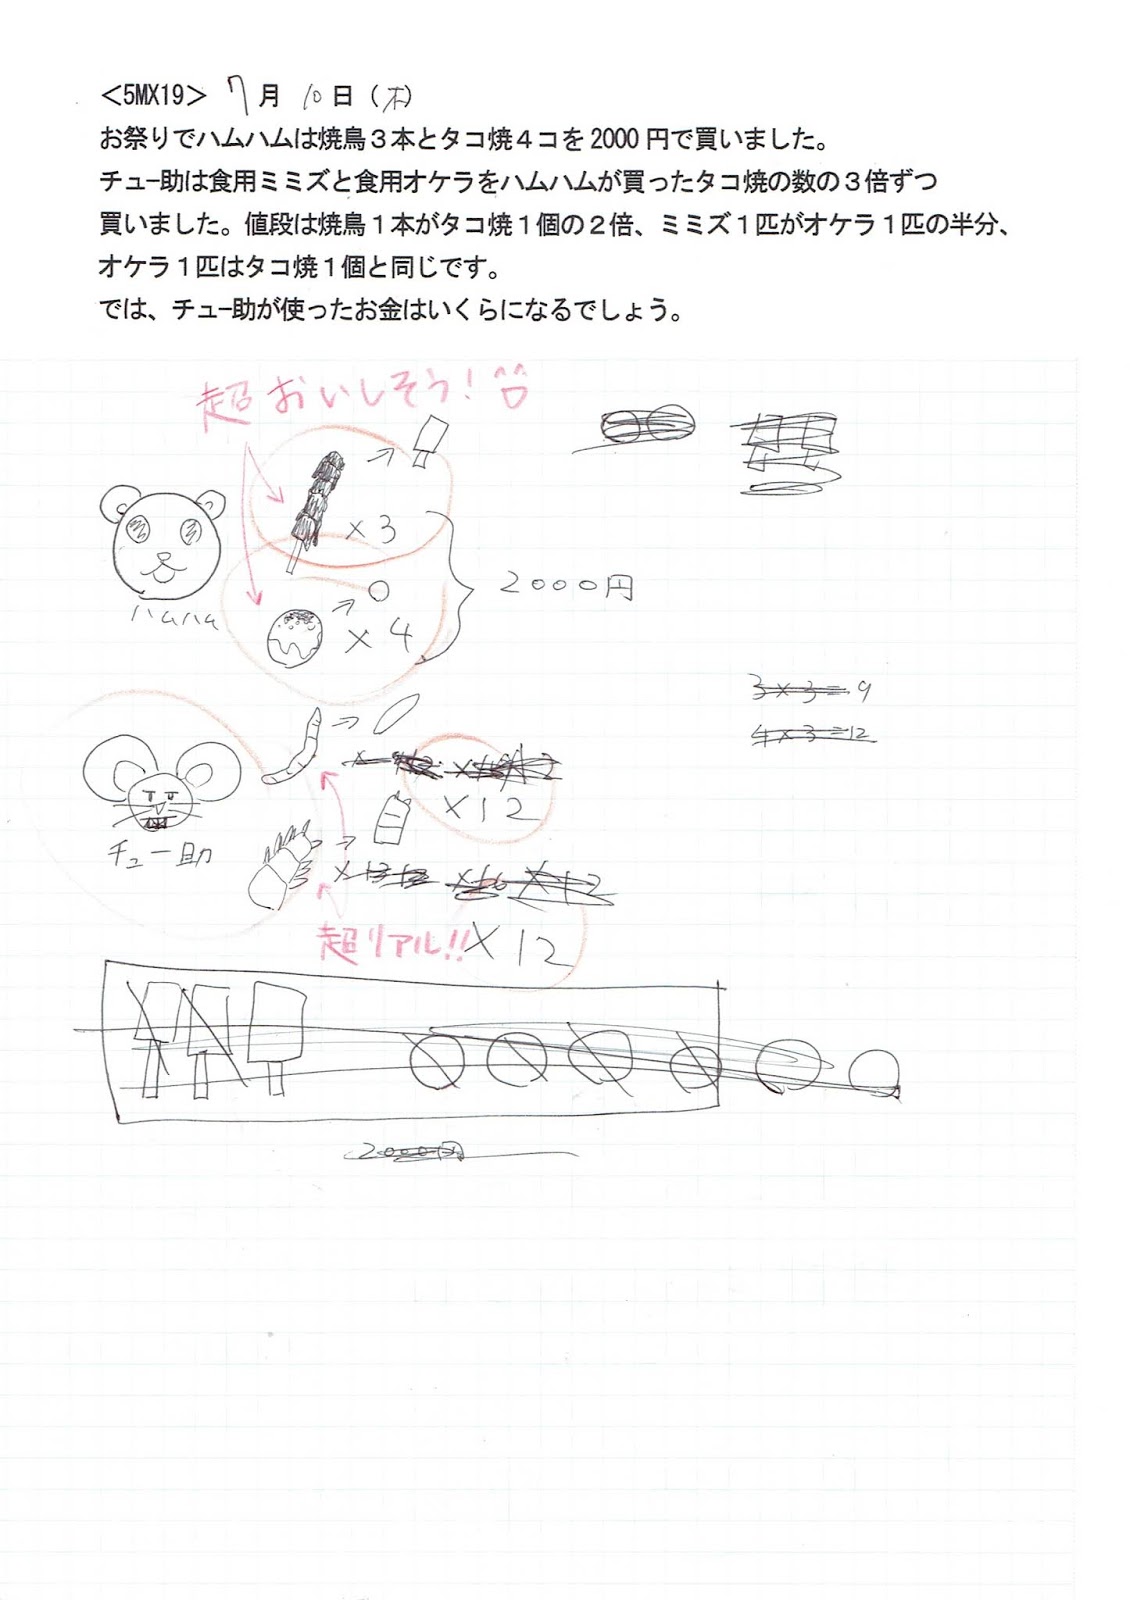 <5MX19> 7月 10日（木）
お祭りでハムハムは焼鳥３本とタコ焼４コを2000円で買いました。
チュー助は食用ミミズと食用オケラをハムハムが買ったタコ焼の数の３倍ずつ
買いました。値段は焼鳥１本がタコ焼１個の２倍、ミミズ１匹がオケラ１匹の半分、
オケラ１匹はタコ焼１個と同じです。
では、チュー助が使ったお金はいくらになるでしょう。
超おいしそう！
×3
2000円
ハムハム
×4
3×3＝9
4×3＝12
×12
チュー助
超リアル!!
×12
2000円